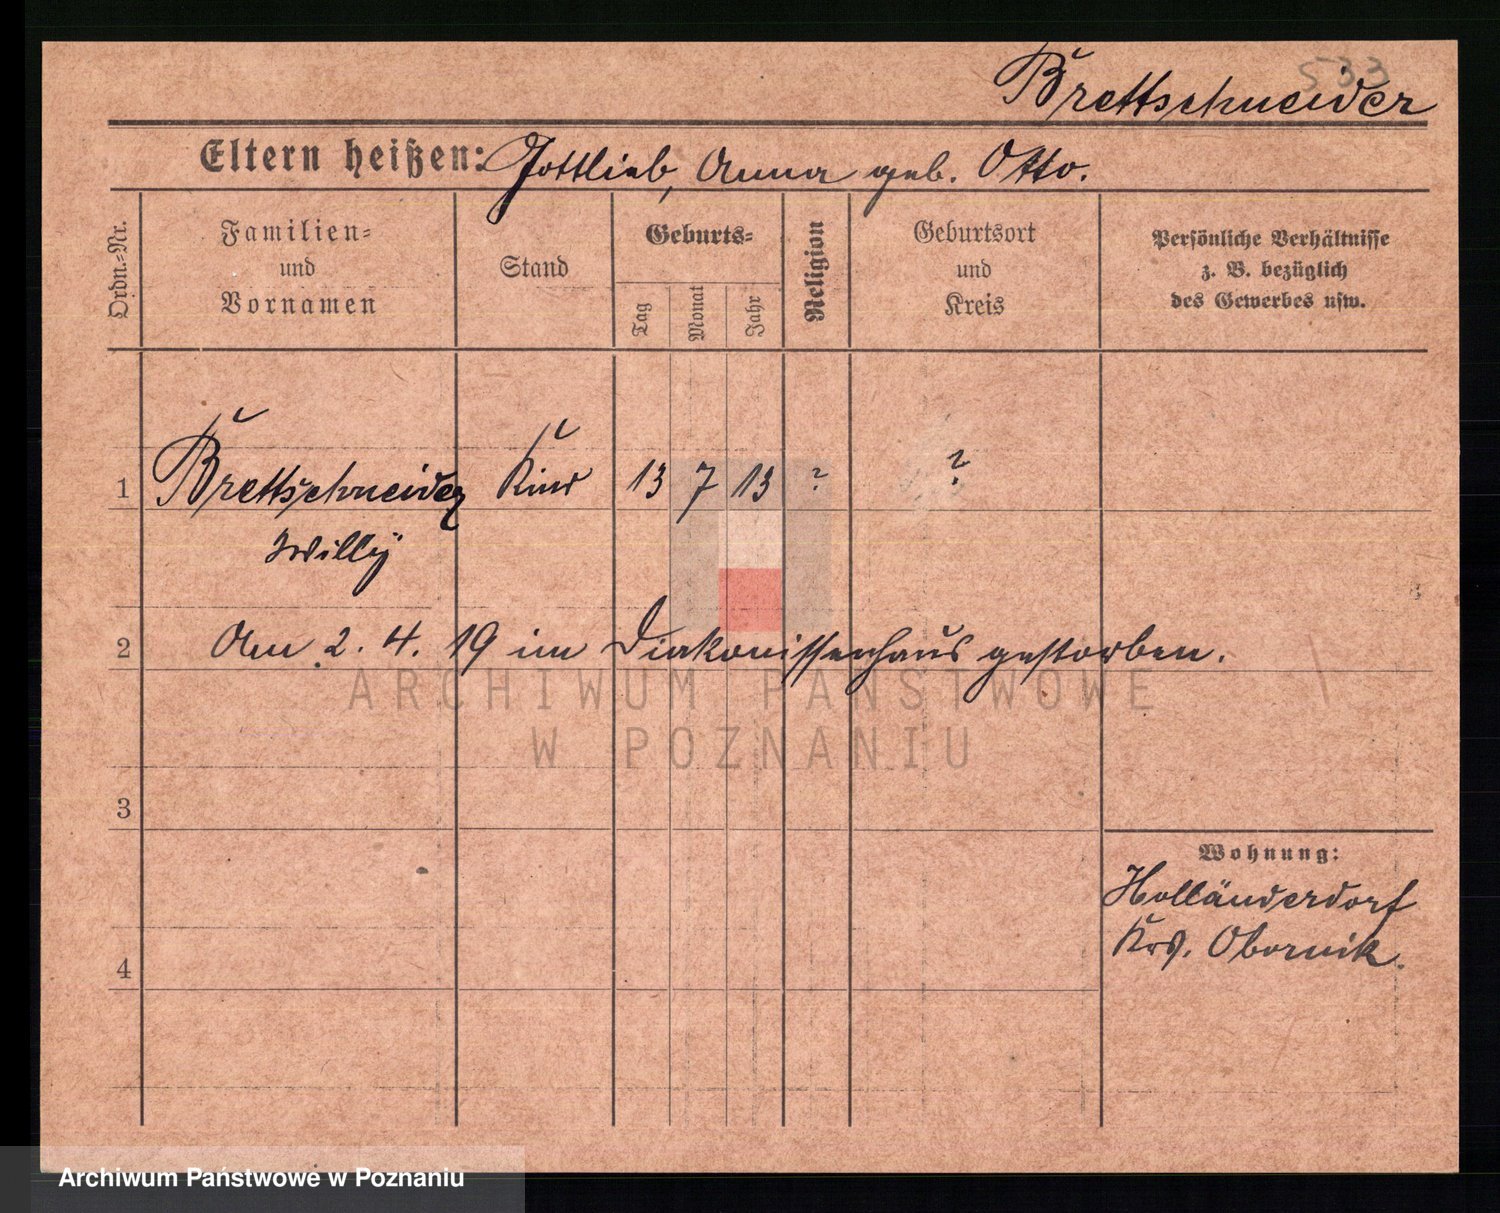 533
Brettschneider
Eltern heißen: Gottlieb, Anna geb. Otto.
Ordn.=Nr.
Familien=
und
Vornamen
Stand
Geburts=
Tag
Monat
Jahr
Religion
Geburtsort
und
Kreis
Persönliche Verhältnisse
z. B. bezüglich
des Gewerbes usw.
1 Brettschneider Kind 13 7 13 ? ?
Willÿ
2 Am 2. 4. 19 im Diakonissenhaus gestorben.
ARCHIWUM PAŃSTWOWE
W POZNANIU
3
Wohnung:
Holländerdorf
Krs. Obornik.
4
Archiwum Państwowe w Poznaniu